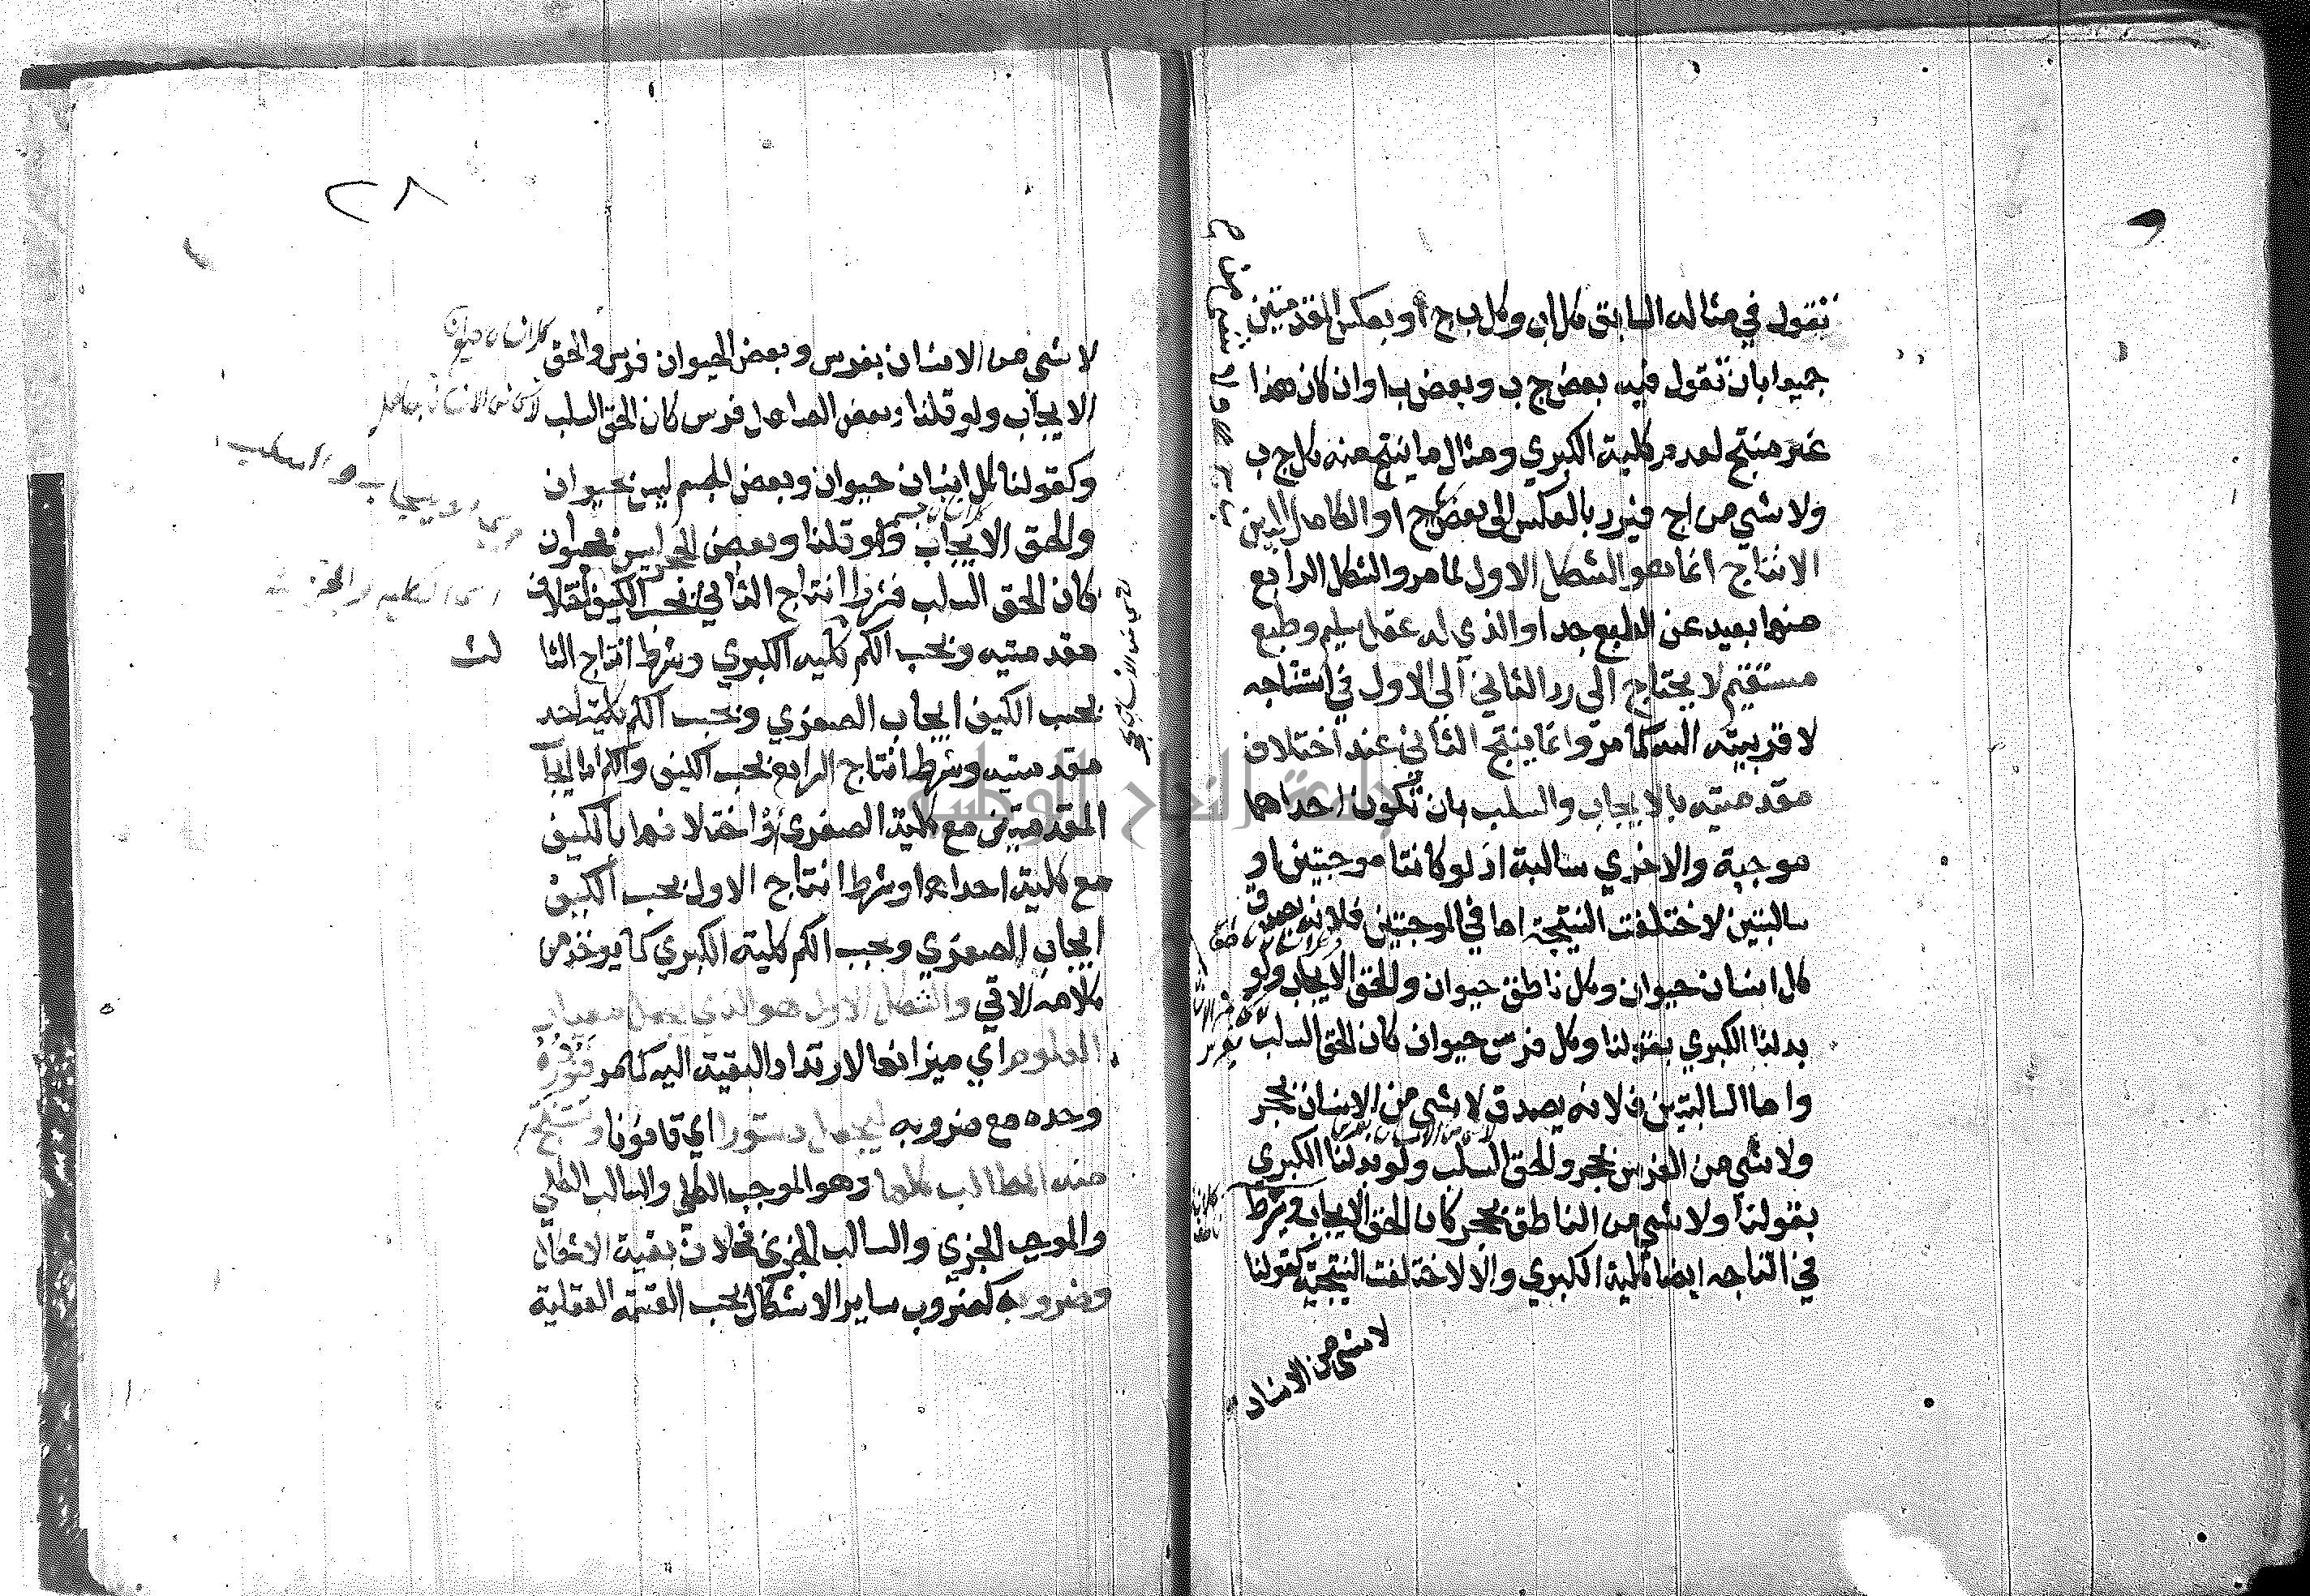 تقول في مثاله السابق كل اب وكل ب ج أو بعكس المقدمتين
جميعا بان تقول فيه بعض ج ب وبعض ب ا وان كان هذا
غير منتج لعدم كلية الكبري ومثال ما ينتج منه كل ج ب
ولا شي من ا ج فيرد بالعكس الى بعض ج ا والكامل البين
الانتاج انما هو الشكل الاول لما مر والشكل الرابع
منها بعيد عن الطبع جدا والذي له عقل سليم وطبع
مستقيم لا يحتاج الى رد الثاني الى الاول في استنتاجه
لاقربيته اليه كما مر وانما ينتج الثاني عند اختلاف
مقدمتيه بالايجاب والسلب بان تكون احداهما
موجبة والاخري سالبة اذ لو كانتا موجبتين او
سالبتين لاختلفت النتيجة اما في الموجبتين فلانه يصدق
كل انسان حيوان وكل ناطق حيوان والحق الايجاب ولو
بدلنا الكبري بقولنا وكل فرس حيوان كان الحق السلب
واما السالبتين فلانه يصدق لا شي من الانسان بحجر
ولا شي من الفرس بحجر والحق السلب ولو بدلنا الكبري
بقولنا ولا شي من الناطق بحجر كان الحق الايجاب ويشترط
في انتاجه ايضا كلية الكبري والا لاختلفت النتيجة كقولنا
لا شي من الانسان
٢٨
لا شي من الانسان بفرس وبعض الحيوان فرس والحق
كل انسان حيوان
الايجاب ولو قلنا وبعض الصاهل فرس كان الحق السلب
لا شي من الانسان بصاهل
اي الايجاب والسلب
وكقولنا كل انسان حيوان وبعض الجسم ليس بحيوان
والحق الايجاب ولو قلنا وبعض الحجر ليس بحيوان
كان الحق السلب فشرط انتاج الثاني بحسب الكيف اختلاف
اي الكلية والجزئية
مقدمتيه وبحسب الكم كلية الكبري وشرط انتاج الثا
لث
بحسب الكيف ايجاب الصغري وبحسب الكم كلية احد
مقدمتيه وشرط انتاج الرابع بحسب الكيف والكم اما ايجاب
المقدمتين مع كلية الصغري او اختلافهما بالكيف
مع كلية احداهما وشرط انتاج الاول بحسب الكيف
ايجاب الصغري وبحسب الكم كلية الكبري كما يوخذ من
كلامه الاتي والشكل الاول هو الذي يجعل معيار
العلوم اي ميزانها لارتداد البقية اليه كما مر فنورده
وحده مع ضروبه ليجعل دستورا اي قانونا وتستنتج
منه المطالب كلها وهو الموجب الكلي والسالب الكلي
والموجب الجزي والسالب الجزي بخلاف بقية الاشكال
وضروبه كضروب ساير الاشكال بحسب القسمة العقلية